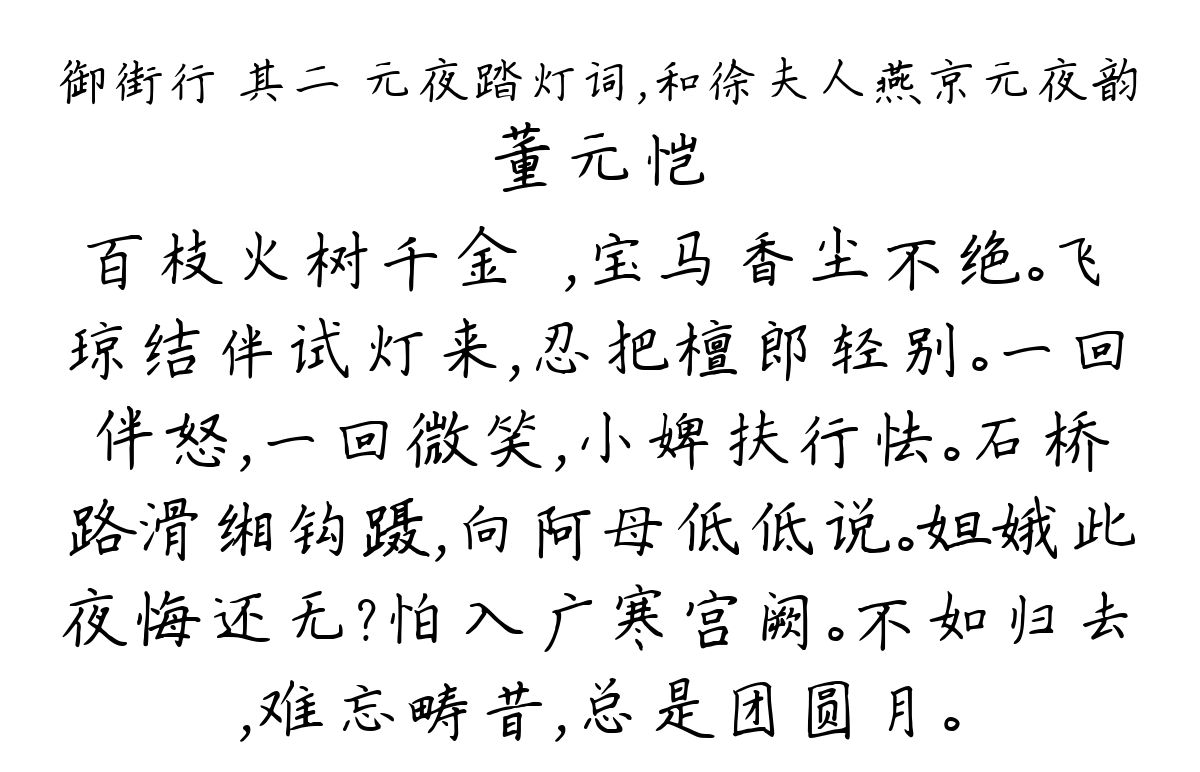 御街行 其二 元夜踏灯词,和徐夫人燕京元夜韵
董元恺
百枝火树千金 ,宝马香尘不绝。飞
琼结伴试灯来,忍把檀郎轻别。一回
伴怒,一回微笑,小婢扶行怯。石桥
路滑缃钩蹑,向阿母低低说。妲娥此
夜悔还无?怕入广寒宫阙。不如归去
,难忘畴昔,总是团圆月。